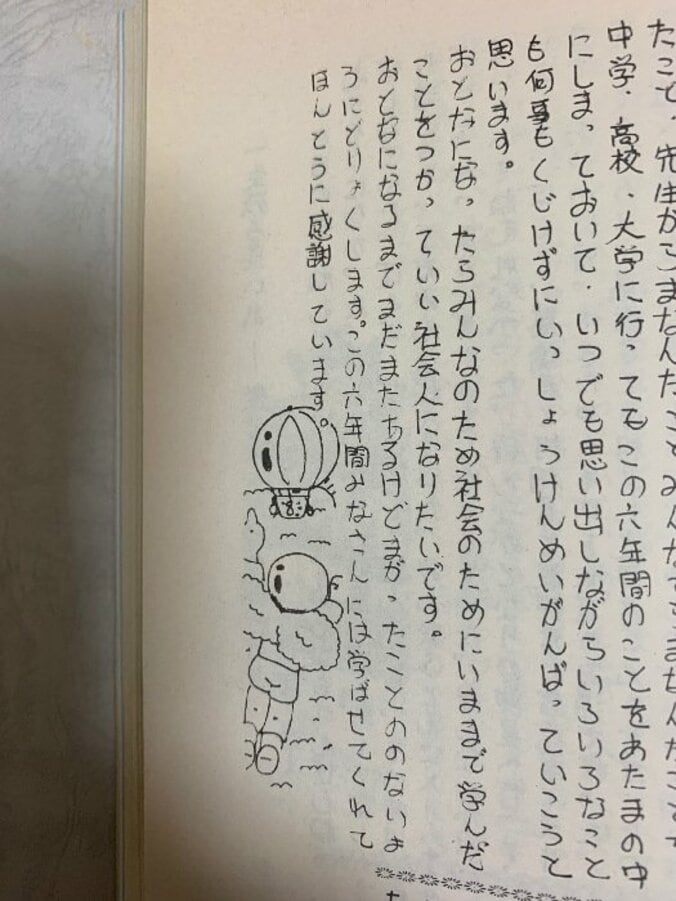 たこと、先生からまなんだことみんなですませんだことで
中学、高校、大学に行ってもこの六年間のことをあたまの中
にしまっておいて、いつでも思い出しながらいろいろなこと
も何事もくじけずにいっしょうけんめいがんばっていこうと
思います。
おとなになったらみんなのため社会のためにいままで学んだ
ことをつかっていい社会人になりたいです。
おとなになるまでまだまたちあるけどまがったことののないよ
うにどりょくします。この六年間みなさんには学ばせてくれて
ほんとうに感謝しています。